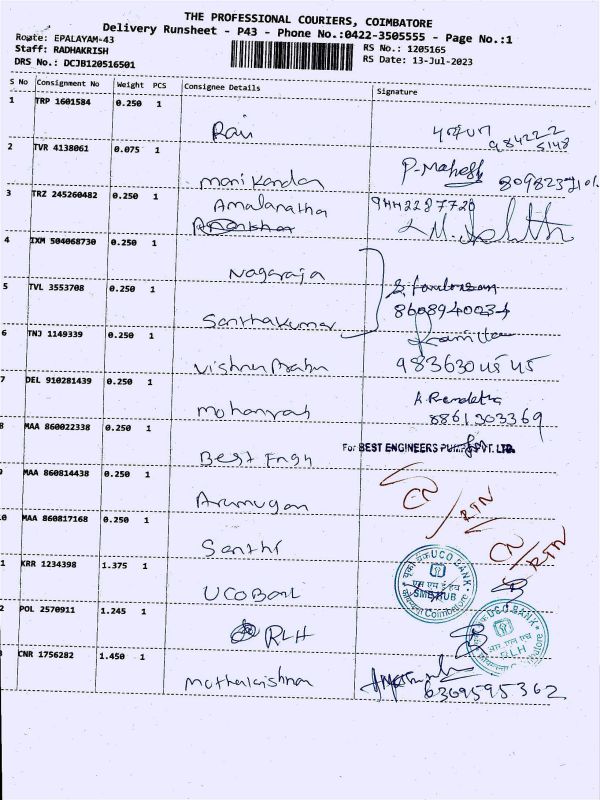 THE PROFESSIONAL COURIERS, COIMBATORE
Delivery Runsheet - P43 - Phone No.:0422-3505555 - Page No.:1
Route: EPALAYAM-43
RS No.: 1205165
Staff: RADHAKRISH
RS Date: 13-Jul-2023
DRS No.: DCJB120516501
S No Consignment No Weight PCS Consignee Details Signature
1 TRP 1601584 0.250 1
Ravi
984222
5148
2 TVR 4138061 0.075 1
manikandan
P-Mahesh
3 TRZ 245260482 0.250 1
Amalanatha
9442287720
4 IXM 504068730 0.250 1
Nagaraja
5 TVL 3553708 0.250 1
8608940034
Santhakumar
6 TNJ 1149339 0.250 1
Vishnu Prabu
9836304545
7 DEL 910281439 0.250 1
mohanraj
8861303369
8 MAA 860022338 0.250 1
For BEST ENGINEERS PUMPS PVT. LTD.
Best Engh
9 MAA 860814438 0.250 1
Arumugam
CN / RTN
0 MAA 860817168 0.250 1
Santhi
CN / RTN
1 KRR 1234398 1.375 1
UCO Bank
यूको बैंक UCO BANK
एस एम ई हब
SME HUB
Coimbatore
2 POL 2570911 1.245 1
RLH
UCO BANK
आर एल एच
RLH
3 CNR 1756282 1.450 1
Muthukrishnan
6369595362